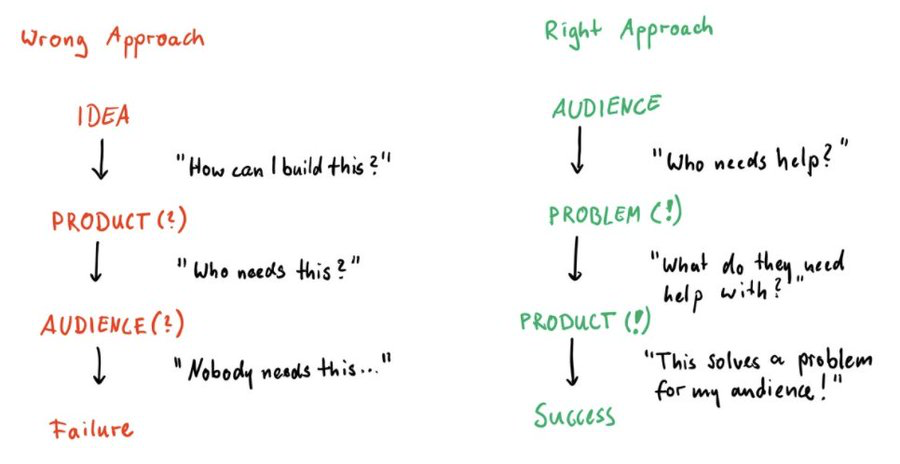 Wrong Approach
IDEA
"How can I build this?"
PRODUCT (?)
"Who needs this?"
AUDIENCE (?)
"Nobody needs this..."
Failure
Right Approach
AUDIENCE
"Who needs help?"
PROBLEM (!)
"What do they need
help with?"
PRODUCT (!)
"This solves a problem
for my audience!"
Success